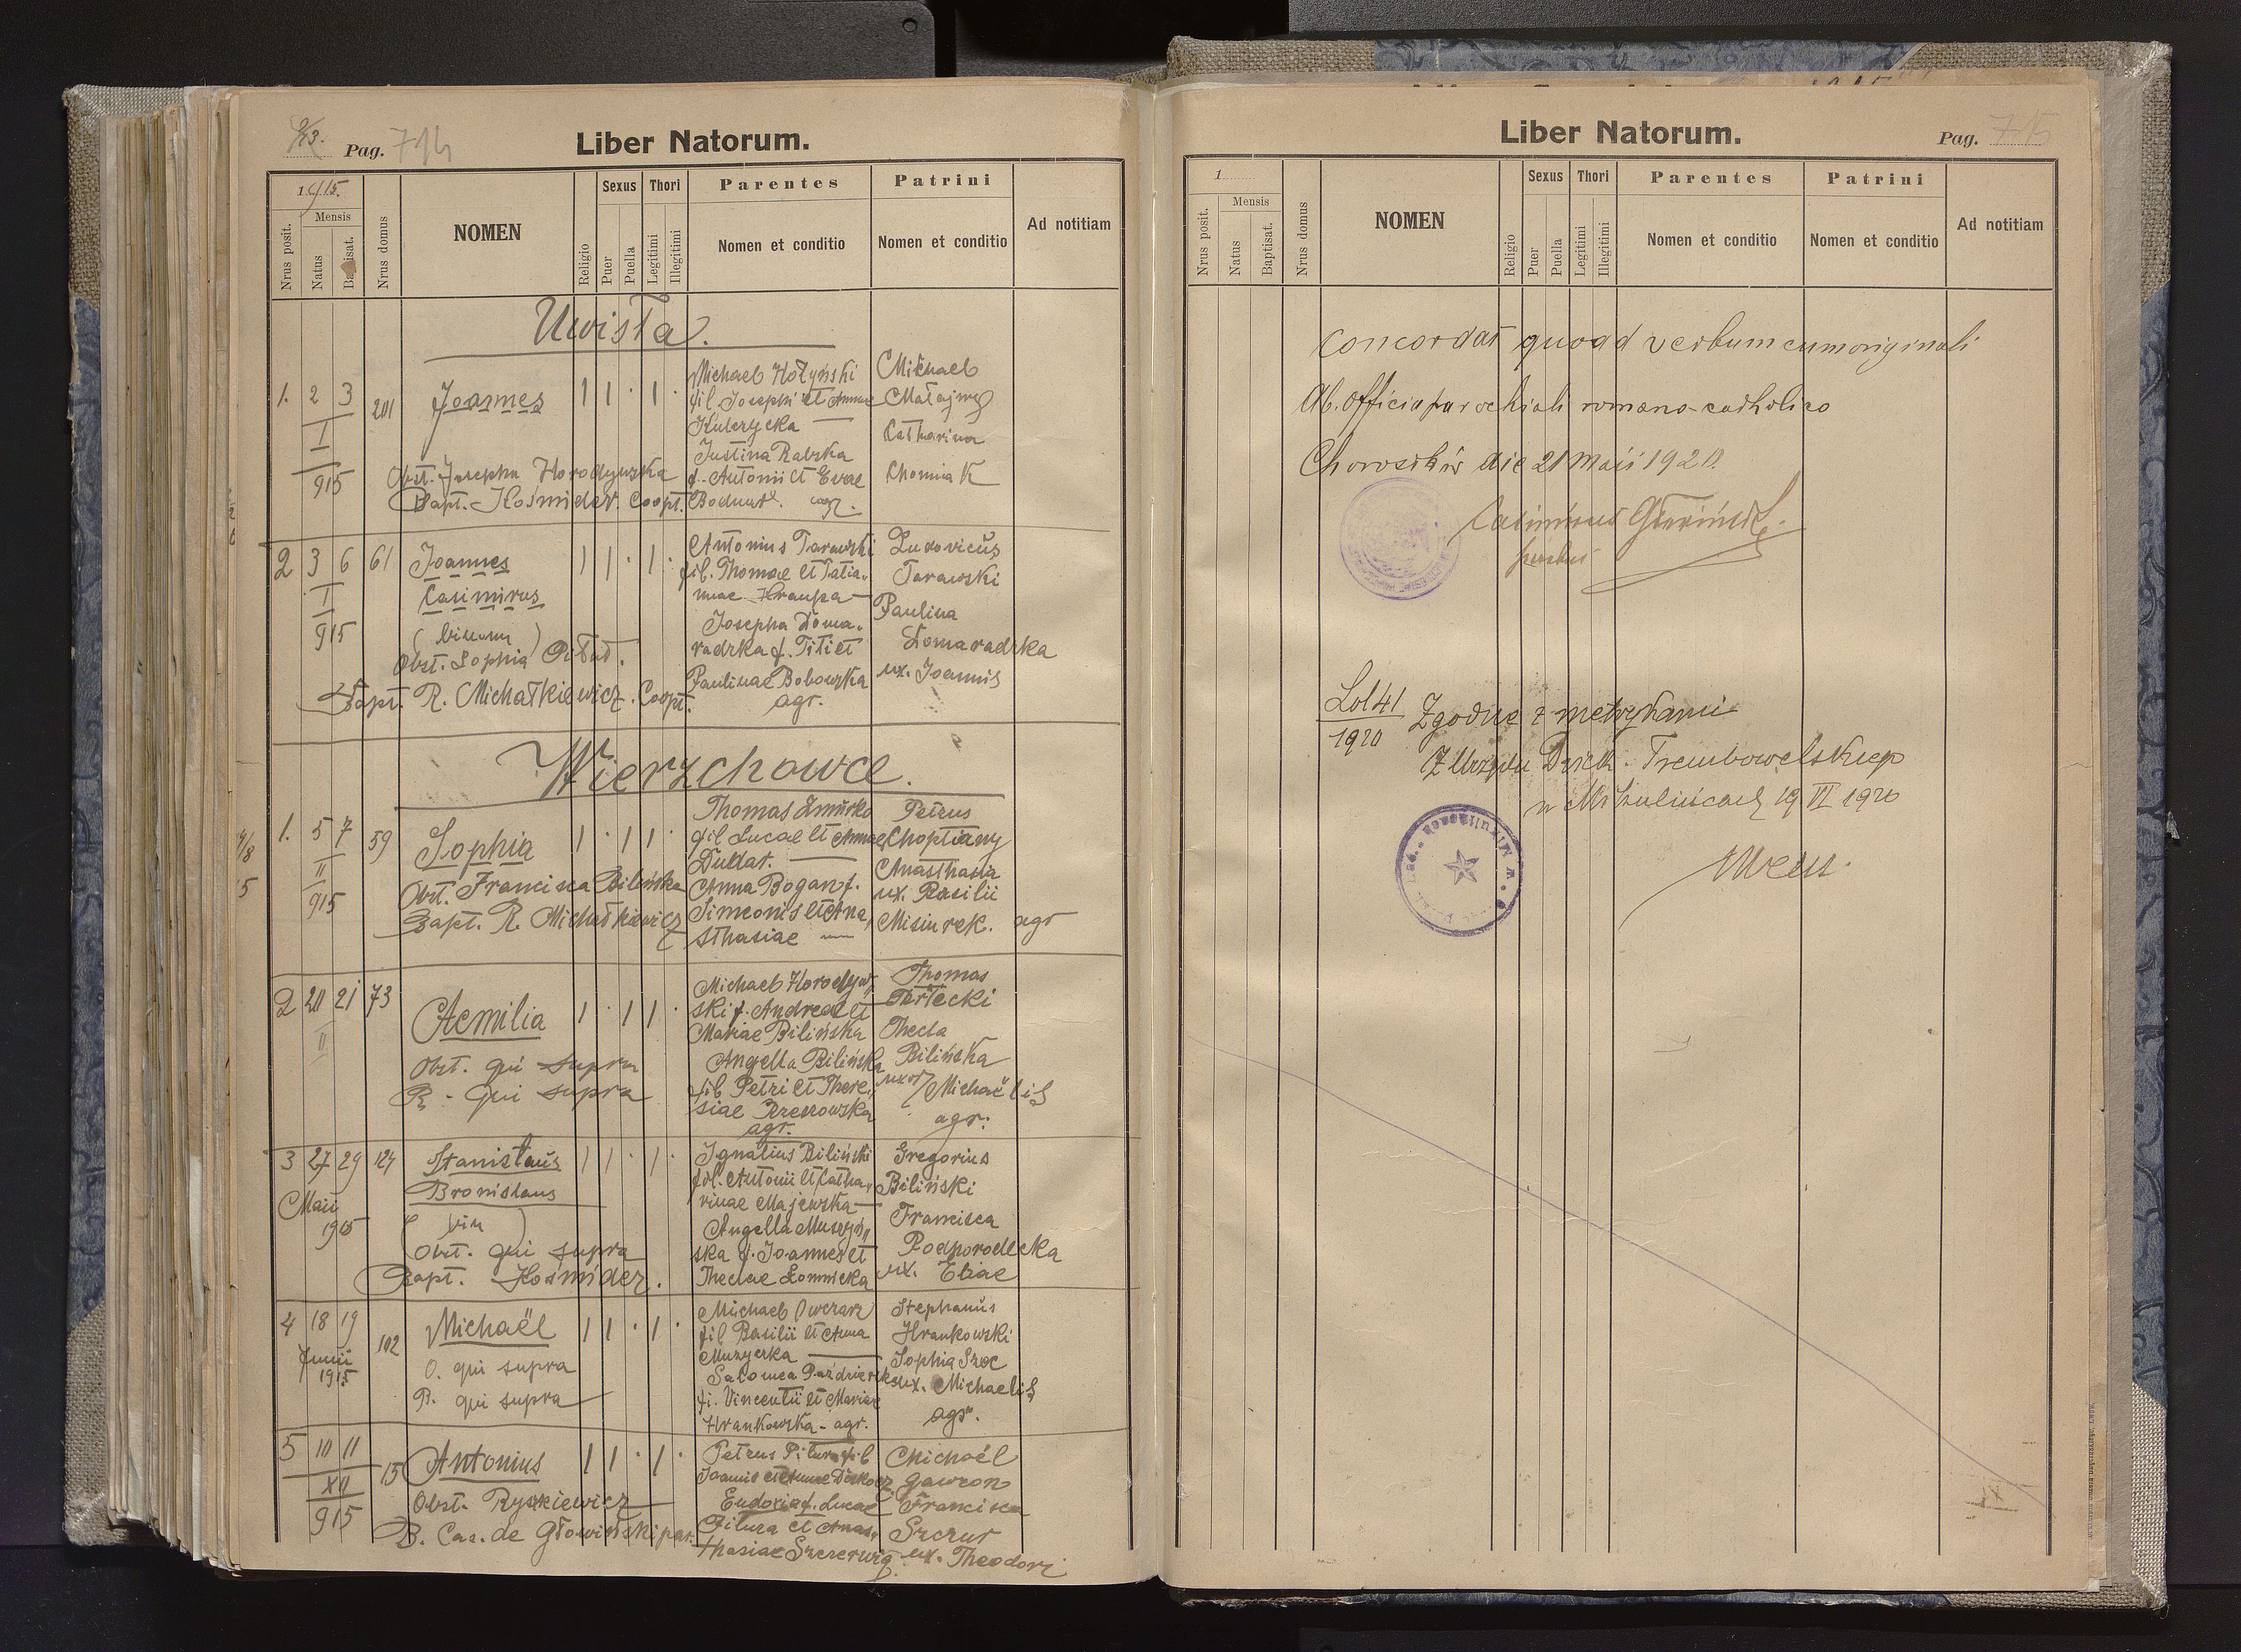 Pag. 714
Liber Natorum.
1915.
Nrus posit.
Mensis
Natus
Baptisat.
Nrus domus
NOMEN
Religio
Sexus
Puer
Puella
Thori
Legitimi
Illegitimi
Parentes
Nomen et conditio
Patrini
Nomen et conditio
Ad notitiam
Uwisła.
1. 2 3 201 Joannes 1 1 . 1 .
I
915
Obst. Josepha Horodywska
Bapt. Kośmider. Coopt.
Michael Hołyński
fil. Josephi et Annae
Kulczycka
Justina Rabska
f. Antonii et Evae
Bodnar.
Michael
Małajny
Catharina
Chomiak
2 3 6 61 Joannes 1 1 . 1 .
I
915
Casimirus
Obst. Sophia
Bapt. R. Michałkiewicz. Coopt.
Antonius Tarawski
fil. Thomae et Tatia-
nnae
Josepha Doma-
radzka f. Titi et
Paulinae Bobowska
agr.
Ludovicus
Tarawski
Paulina
Domaradzka
ux. Joannis
Wierzchowce.
1. 5 7 59 Sophia 1 . 1 1 .
II
915
Obst. Francisca Bilińska
Bapt. R. Michałkiewicz
Thomas Żmurko
fil Lucae et Annae
Dudar.
Anna Bogan f.
Simeonis et Ana
sthasiae
Petrus
Choptiany
Anasthasia
ux. Basilii
Misiurek. agr
2 20 21 73 Aemilia 1 . 1 1 .
II
Obst. qui supra
B. qui supra
Michael Horodyw-
ski f. Andreae et
Mariae Bilińska
Angella Bilińska
fil Petri et There-
siae
agr.
Thomas
Terlecki
Thecla
Bilińska
uxor Michaëlis
agr.
3 27 29 124 Stanislaus 1 1 . 1 .
Maii
1915
Bronislaus
(bin)
Obst. qui supra
Bapt. Kośmider.
Ignatius Biliński
fil. Antonii et Catha-
rinae Majewska
Angella Muszyń-
ska f. Joannes et
Theclae Łomnicka
Gregorius
Biliński
Francisca
Podhorodecka
ux. Eliae
4 18 19 102 Michaël 1 1 . 1 .
Junii
1915
O. qui supra
B. qui supra
Michael Owczarz
fil Basilii et Anna
Muzyczka
Salomea
fi. Vincentii et Mariae
Hrankowska - agr.
Stephanus
Hrankowski
Sophia Szoc
ux. Michaelis
agr.
5 10 11 15 Antonius 1 1 . 1 .
XII
915
Obst. Ryszkiewicz
B. Cas. de Głowiński par.
Petrus Pitura fil
Joannis et Annae
Eudoxia f. Lucae
Pitura et Anas-
thasiae
Michaël
Gawron
Francisca
Szczur
ux. Theodori
Liber Natorum.
Pag. 715
1
Nrus posit.
Mensis
Natus
Baptisat.
Nrus domus
NOMEN
Religio
Sexus
Puer
Puella
Thori
Legitimi
Illegitimi
Parentes
Nomen et conditio
Patrini
Nomen et conditio
Ad notitiam
Concordat quoad verbum cum originali
Ab. Officio parochiali romano-catholico
Chorostków die 21 Maii 1920.
Casimirus Głowiński
Lol 41
1920
Zgodne z metrykami
Z Urzędu Dziek. Trembowelskiego
w Mikulińcach 19 VI 1920